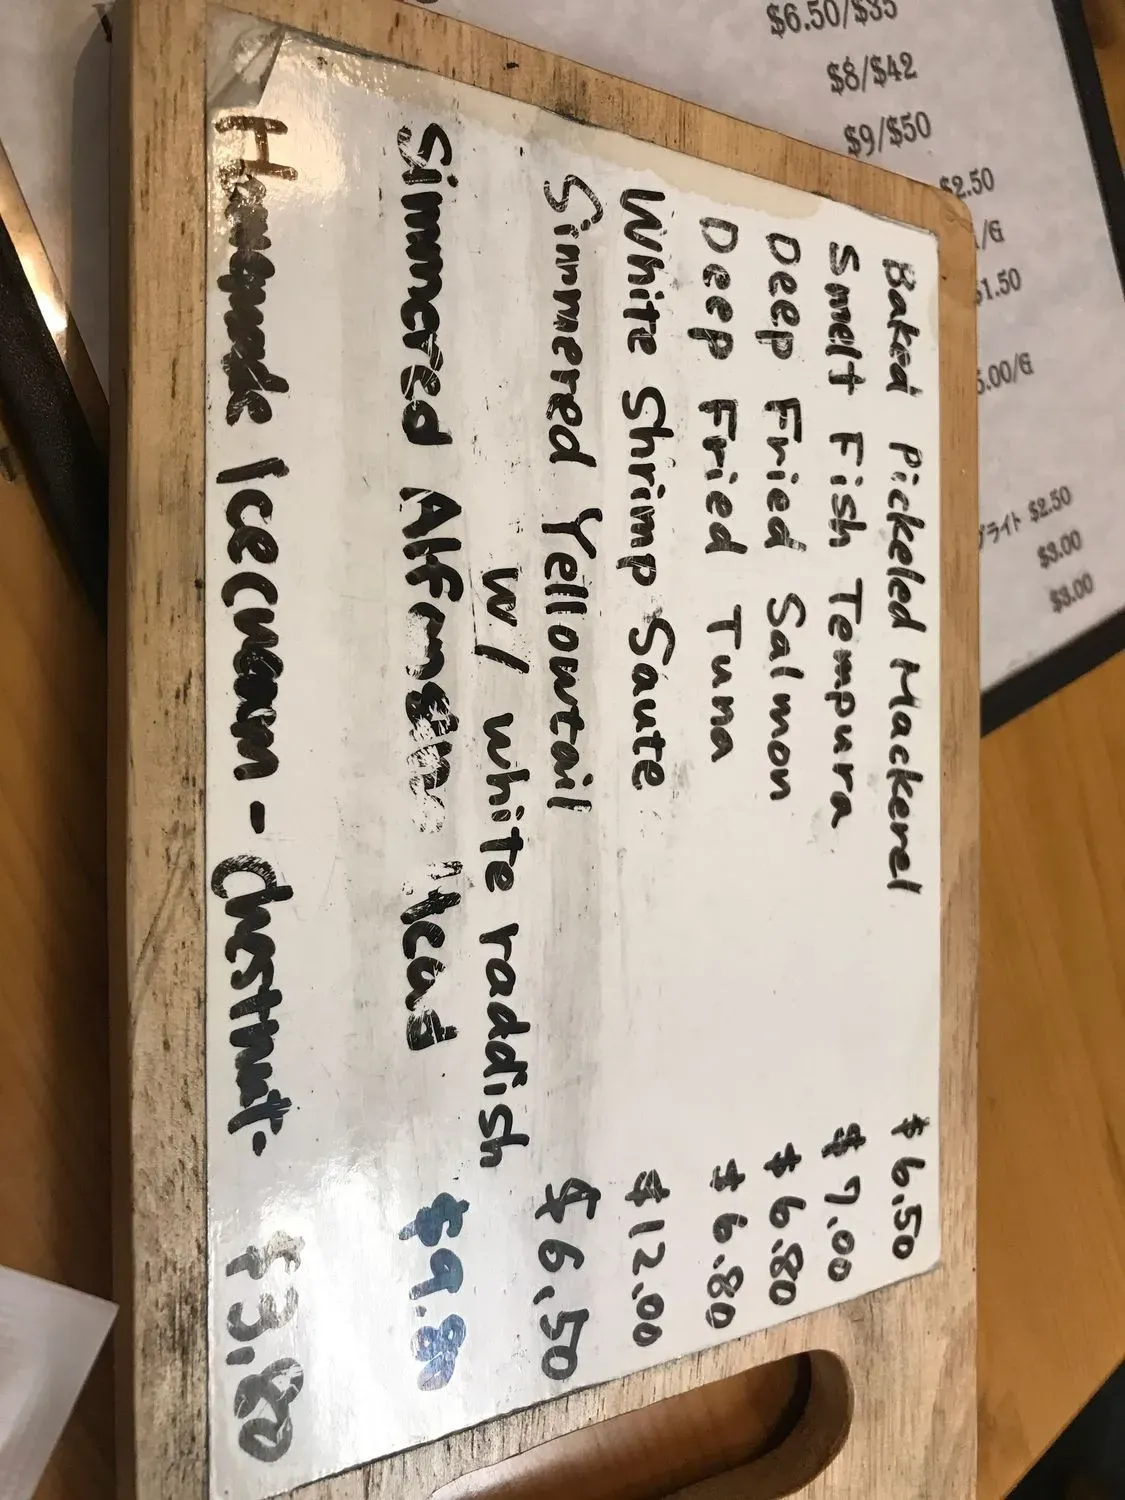 Baked Pickeled Mackerel $6.50
Smelt Fish Tempura $7.00
Deep Fried Salmon $6.80
Deep Fried Tuna $6.80
White Shrimp Saute $12.00
Simmered Yellowtail
w/ white raddish $6.50
Simmered Alfonsino Head $9.80
Homemade Icecream - Chestnut- $3.80
$6.50/$35
$8/$42
$9/$50
$2.50
/G
$1.50
5.00/G
プライト $2.50
$3.00
$3.00